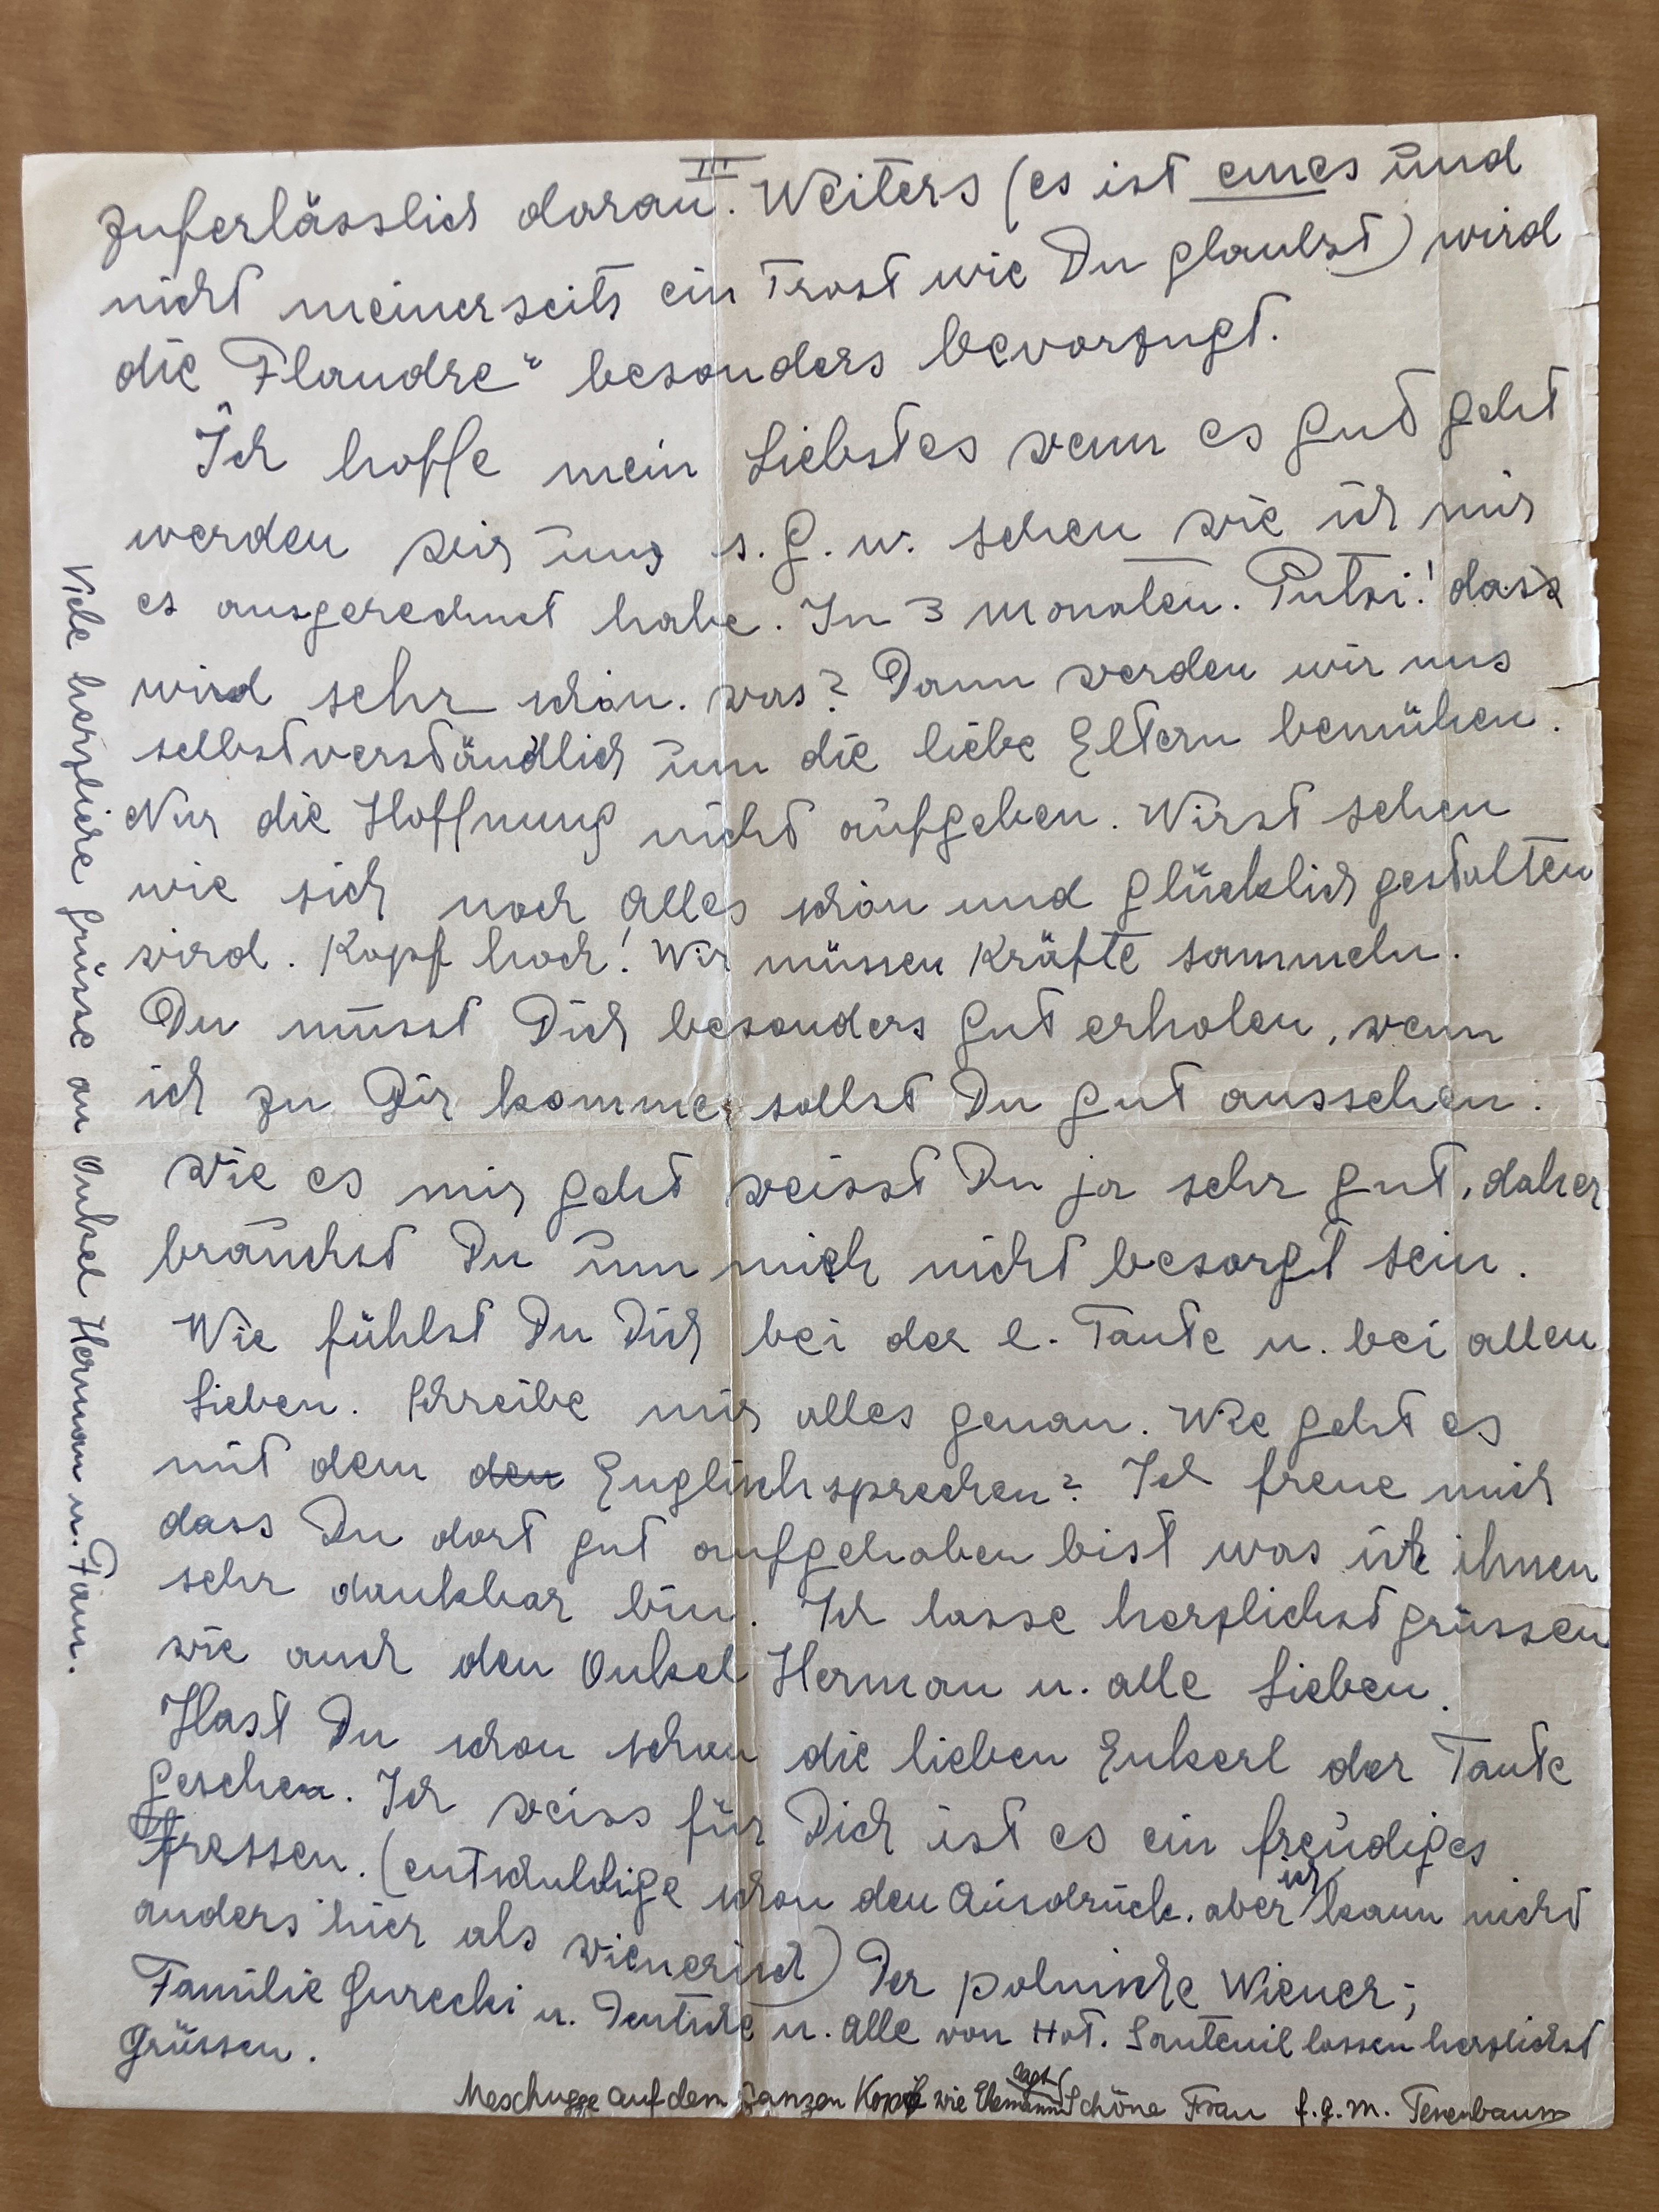 III
zuferlässlich daran. Weiters (es ist eines und
nicht meinerseits ein Trost wie Du glaubst) wird
die Flandre" besonders bevorzugt.
Ich hoffe mein Liebstes wenn es gut geht
werden wir uns s. G. w. sehen wie ich mir
es ausgerechnet habe. In 3 Monaten. Putzi! dass
wird sehr schön. was? Dann werden wir uns
selbstverständlich um die liebe Eltern bemühen.
Nur die Hoffnung nicht aufgeben. Wirst sehen
wie sich noch alles schön und glücklich gestalten
wird. Kopf hoch! Wir müssen Kräfte sammeln.
Du musst Dich besonders gut erholen, wenn
ich zu Dir komme sollst Du gut aussehen.
Wie es mir geht weisst Du ja sehr gut, daher
brauchst Du um mich nicht besorgt sein.
Wie fühlst Du Dich bei der l. Tante u. bei allen
Lieben. Schreibe mir alles genau. Wie geht es
mit dem den Englisch sprechen? Ich freue mich
dass Du dort gut aufgehoben bist was ich ihnen
sehr dankbar bin. Ich lasse herzlichst grüssen
wie auch den Onkel Herman u. alle Lieben.
Hast Du schon schon die lieben Enkerl der Tante
gesehen. Ich weiss für Dich ist es ein freudiges
Fressen. (entschuldige schon den Ausdruck. aber ich kann nicht
anders hier als wienerisch) Der polnische Wiener;
Familie Gurecki u. Deutsche u. alle von Hot. Santeuil lassen herzlichst
Grüssen.
Meschugge auf dem ganzen Kopf wie Ehemann sagt Schöne Frau f. g. m. Tenenbaum
Viele herzliche Grüsse an Onkel Herman u. Fam.